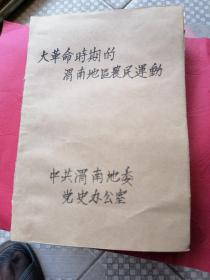 大革命時期的
渭南地區農民運動
中共渭南地委
党史办公室